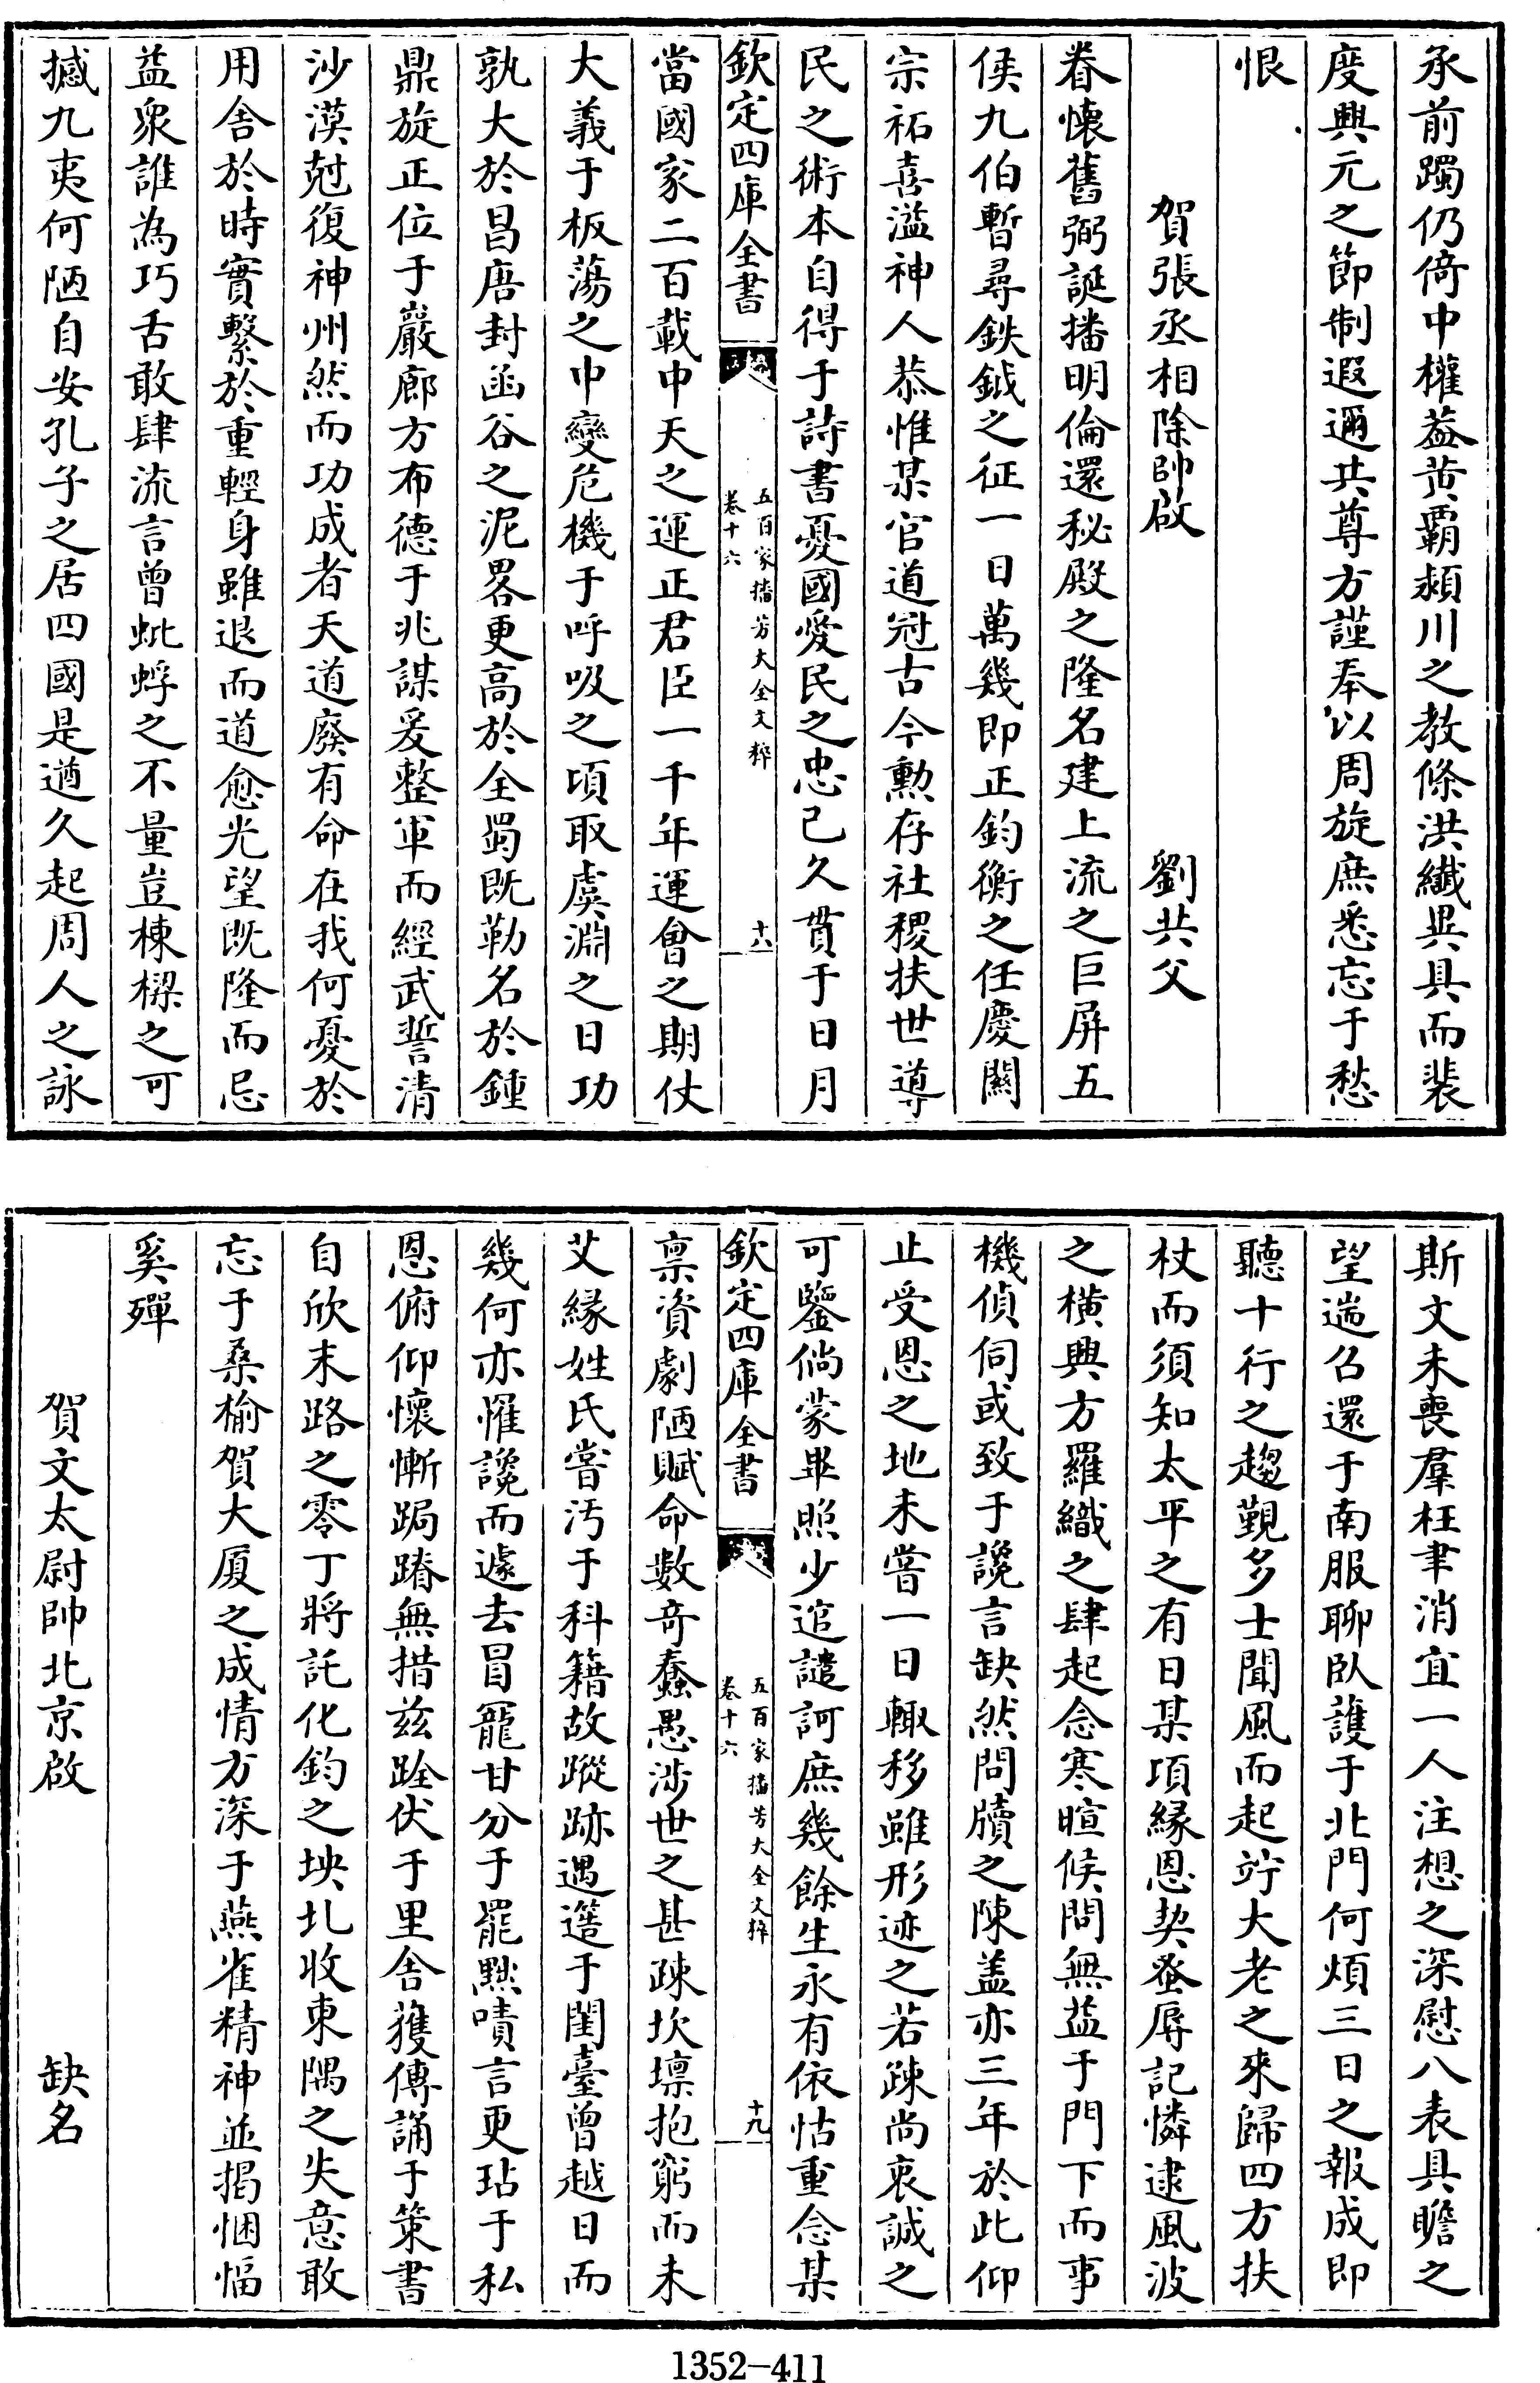 承前躅仍倚中權葢黄覇頴川之教條洪纎畢具而裴
度興元之節制遐邇共尊方謹奉以周旋庶悉忘于愁
恨
賀張丞相除帥啟　劉共父
眷懷舊弼誕播明倫還秘殿之隆名建上流之巨屏五
侯九伯暫尋鈇鉞之征一日萬幾即正鈞衡之任慶關
宗祏喜溢神人恭惟某官道冠古今勲存社稷扶世導
民之術本自得于詩書憂國愛民之忠已久貫于日月
欽定四庫全書　五百家播芳大全文粹　卷十六　十八
當國家二百載中天之運正君臣一千年運會之期仗
大義于板蕩之中變危機于呼吸之頃取虞淵之日功
孰大於昌唐封函谷之泥畧更高於全蜀既勒名於鍾
鼎旋正位于嚴廊方布德于兆謀爰整軍而經武誓清
沙漠尅復神州然而功成者天道廢有命在我何憂於
用舍於時實繫於重輕身雖退而道愈光望既隆而忌
益衆誰為巧舌敢肆流言曾蚍蜉之不量豈棟樑之可
撼九夷何陋自安孔子之居四國是遒久起周人之詠
斯文未喪羣枉聿消宜一人注想之深慰八表具瞻之
望遄召還于南服聊臥護于北門何煩三日之報成即
聽十行之趨覲多士聞風而起竚大老之來歸四方扶
杖而須知太平之有日某項緣恩契蚤辱記憐逮風波
之横興方羅織之肆起念寒暄候問無益于門下而事
機偵伺或致于讒言缺然問牘之陳盖亦三年於此仰
止受恩之地未嘗一日輙移雖形迹之若疎尚衷誠之
可鑒倘蒙畢照少逭譴訶庶幾餘生永有依怙重念某
欽定四庫全書　五百家播芳大全文粹　卷十六　十九
稟資劇陋賦命數奇蠢愚涉世之甚疎坎壈抱窮而未
艾緣姓氏嘗汚于科籍故蹤跡遇簉于閨臺曾越日而
幾何亦罹讒而遽去冒寵甘分于罷黜嘖言更玷于私
恩俯仰懷慚跼蹐無措兹跧伏于里舍獲傳誦于策書
自欣末路之零丁將託化鈞之坱圠收東隅之失意敢
忘于桑榆賀大厦之成情方深于燕雀精神並掲悃愊
奚殫
賀文太尉帥北京啟　缺名
1352-411